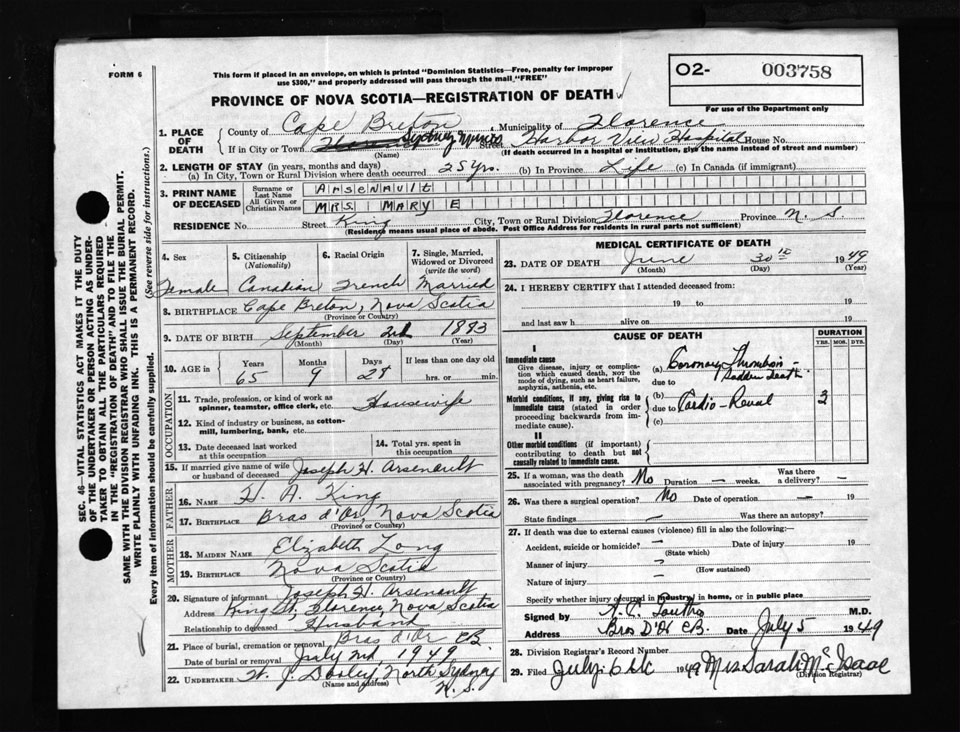 FORM 6
This form if placed in an envelope, on which is printed "Dominion Statistics—Free, penalty for improper
use $300," and properly addressed will pass through the mail "FREE"
O2- 003758
For use of the Department only
PROVINCE OF NOVA SCOTIA—REGISTRATION OF DEATH
1. PLACE OF DEATH
County of Cape Breton Municipality of Florence
If in City or Town Sydney Mines Street Harbor View Hospital House No.
(Name) (If death occurred in a hospital or institution, give the name instead of street and number)
2. LENGTH OF STAY (in years, months and days)
(a) In City, Town or Rural Division where death occurred 25 yrs. (b) In Province Life (c) In Canada (if immigrant)
3. PRINT NAME OF DECEASED
Surname or Last Name Arsenault
All Given or Christian Names MRS. MARY E
RESIDENCE No. Street King City, Town or Rural Division Florence Province N. S.
(Residence means usual place of abode. Post Office Address for residents in rural parts not sufficient)
4. Sex 5. Citizenship (Nationality) 6. Racial Origin 7. Single, Married, Widowed or Divorced (write the word)
Female Canadian French Married
8. BIRTHPLACE Cape Breton, Nova Scotia
(Province or Country)
9. DATE OF BIRTH September 2nd 1883
(Month) (Day) (Year)
10. AGE in Years Months Days If less than one day old
65 9 28 hrs. or min.
OCCUPATION
11. Trade, profession, or kind of work as spinner, teamster, office clerk, etc. Housewife
12. Kind of industry or business, as cotton-mill, lumbering, bank, etc.
13. Date deceased last worked at this occupation
14. Total yrs. spent in this occupation
15. If married give name of wife or husband of deceased Joseph H. Arsenault
FATHER
16. NAME H. A. King
17. BIRTHPLACE Bras d'Or Nova Scotia
(Province or Country)
MOTHER
18. MAIDEN NAME Elizabeth Long
19. BIRTHPLACE Nova Scotia
(Province or Country)
20. Signature of informant Joseph H. Arsenault
Address King St, Florence, Nova Scotia
Relationship to deceased Husband
21. Place of burial, cremation or removal Bras d'Or C.B.
Date of burial or removal July 2nd 1949
22. UNDERTAKER W. J. Dooley, North Sydney
(Name and address) N. S.
MEDICAL CERTIFICATE OF DEATH
23. DATE OF DEATH June 30th 1949
(Month) (Day) (Year)
24. I HEREBY CERTIFY that I attended deceased from:
19 to 19
and last saw h alive on 19
CAUSE OF DEATH DURATION
YRS. MOS. DYS.
I
Immediate cause
Give disease, injury or complication which caused death, NOT the mode of dying, such as heart failure, asphyxia, asthenia, etc.
(a) Coronary Thrombosis - Sudden Death
due to
Morbid conditions, if any, giving rise to immediate cause (stated in order proceeding backwards from immediate cause).
(b)
due to Cardio-Renal 3
(c)
II
Other morbid conditions (if important) contributing to death but not causally related to immediate cause.
25. If a woman, was the death associated with pregnancy? No Duration — weeks. Was there a delivery? —
26. Was there a surgical operation? No Date of operation — 19
State findings — Was there an autopsy? —
27. If death was due to external causes (violence) fill in also the following:—
Accident, suicide or homicide? — Date of injury 19
(State which)
Manner of injury —
(How sustained)
Nature of injury —
Specify whether injury occurred in industry, in home, or in public place
Signed by M.D.
Address Bras D'Or C.B. Date July 5 1949
28. Division Registrar's Record Number
29. Filed July 6 1949 Mrs Sarah McIsaac
(Division Registrar)
SEC. 46—VITAL STATISTICS ACT MAKES IT THE DUTY
OF THE UNDERTAKER OR PERSON ACTING AS UNDER-
TAKER TO OBTAIN ALL THE PARTICULARS REQUIRED
IN THE "REGISTRATION OF DEATH" AND TO FILE THE
SAME WITH THE DIVISION REGISTRAR WHO SHALL ISSUE THE BURIAL PERMIT.
WRITE PLAINLY WITH UNFADING INK. THIS IS A PERMANENT RECORD.
Every item of information should be carefully supplied. (See reverse side for instructions.)